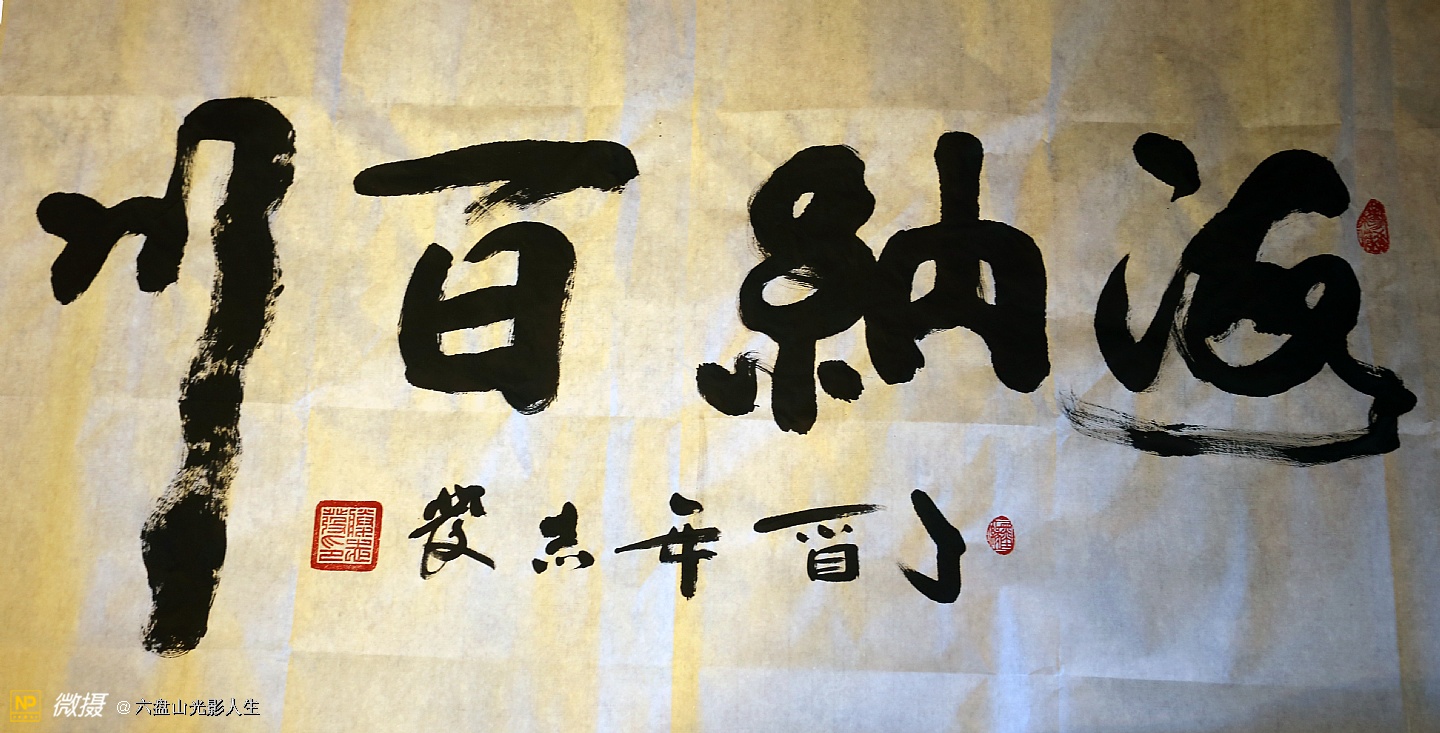 海納百川
丁酉年志發
NP 微摄 @六盘山光影人生